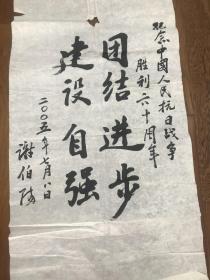 纪念中國人民抗日战争
胜利六十周年
团结进步
建设自强
二〇〇五年七月八日
谢伯陵